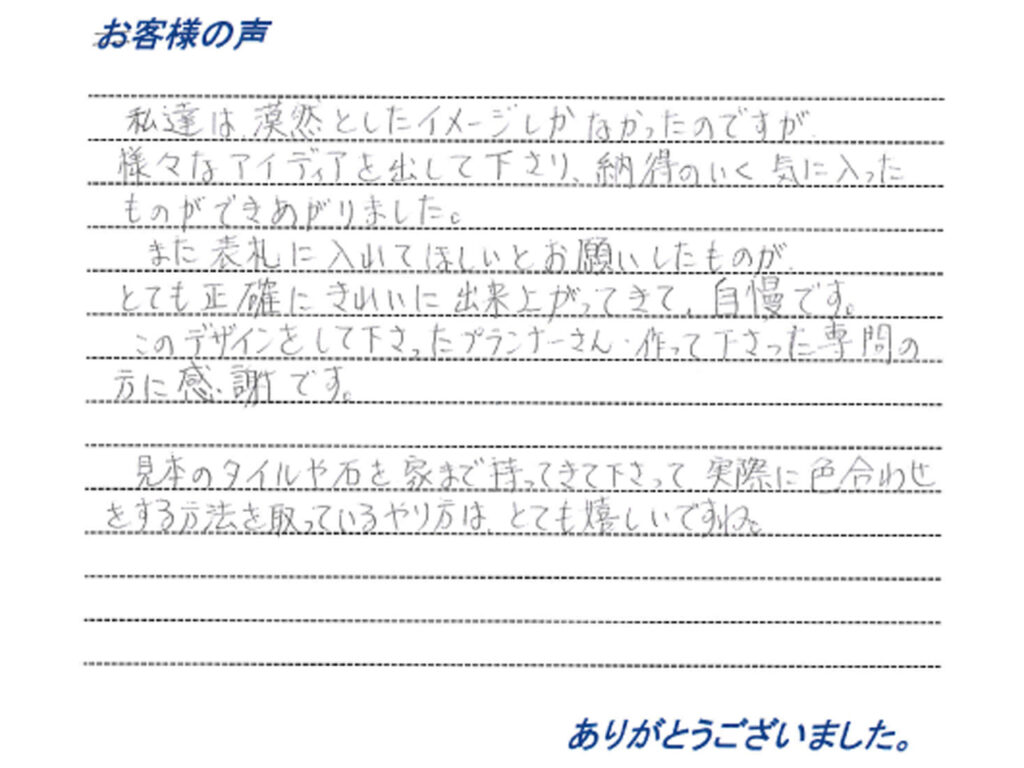 お客様の声
私達は、漠然としたイメージしかなかったのですが、
様々なアイディアを出して下さり、納得のいく気に入った
ものができあがりました。
また表札に入れてほしいとお願いしたものが、
とても正確にきれいに出来上がってきて、自慢です。
このデザインをして下さったプランナーさん・作って下さった専門の
方に感謝です。
見本のタイルや石を家まで持ってきて下さって、実際に色合わせ
をする方法を取っているやり方は、とても嬉しいですね。
ありがとうございました。